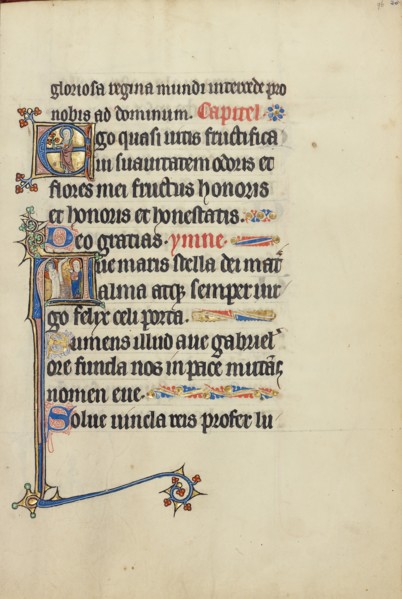 gloriosa regina mundi intercede pro
nobis ad dominum. Capitel.
Ego quasi uitis fructifica
ui suauitatem odoris et
flores mei fructus honoris
et honoris et honestatis.
Deo gratias. ymne.
Aue maris stella dei mat
alma atq; semper uir
go felix celi porta.
Sumens illud aue gabriel
ore funda nos in pace mutãs
nomen eue.
Solue uincla reis profer lu